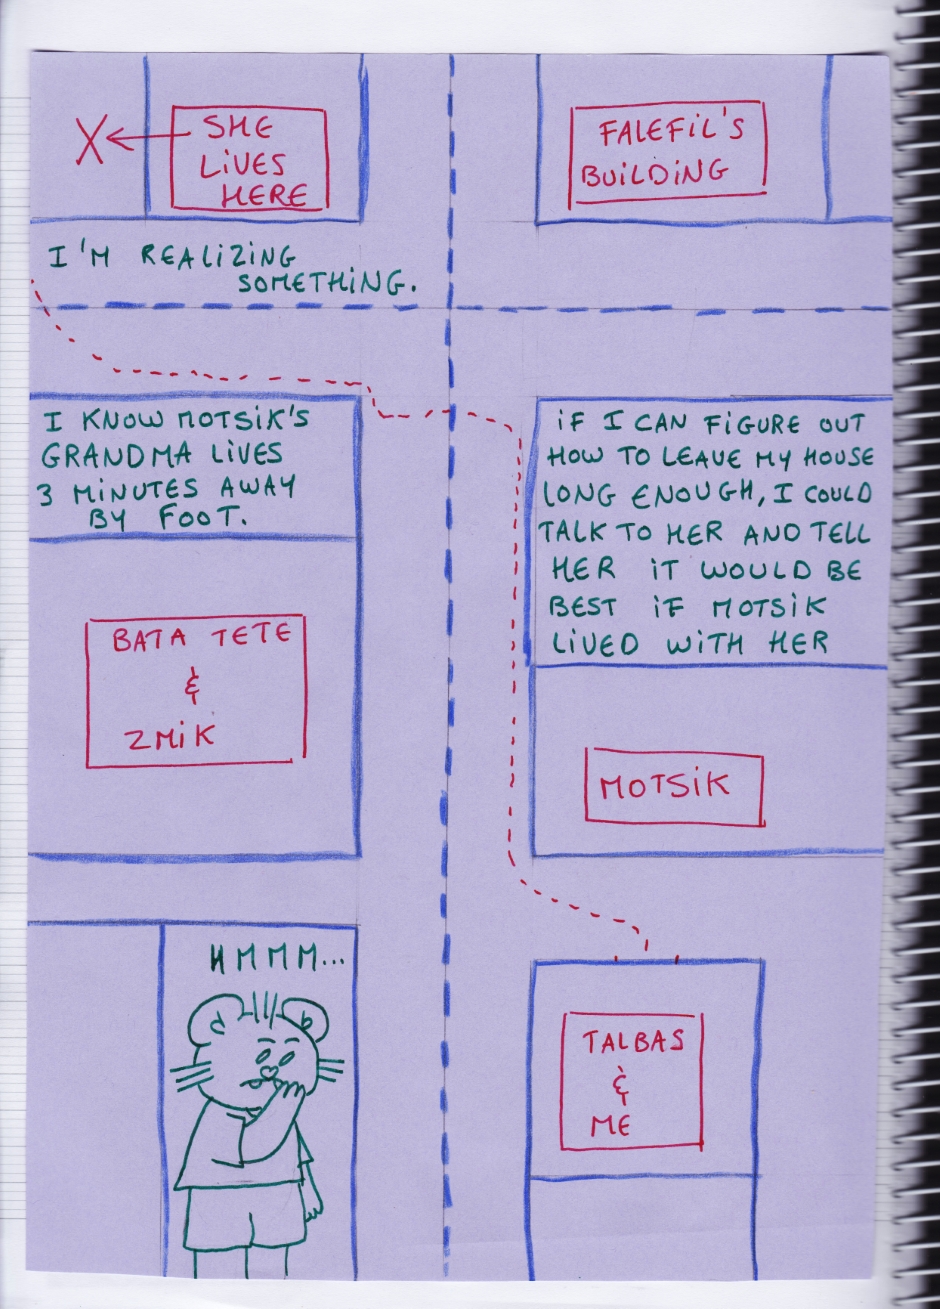 X
SHE
LiVES
HERE
FALEFiL'S
BUiLDiNG
I'M REALiZiNG
SOMETHiNG.
I KNOW MOTSiK'S
GRANDMA LiVES
3 MiNUTES AWAY
BY FOOT.
iF I CAN FiGURE OUT
HOW TO LEAVE MY HOUSE
LONG ENOUGH, I COULD
TALK TO HER AND TELL
HER iT WOULD BE
BEST iF MOTSiK
LiVED WiTH HER
BATA TETE
&
ZMiK
MOTSiK
HMMM...
TALBAS
&
ME